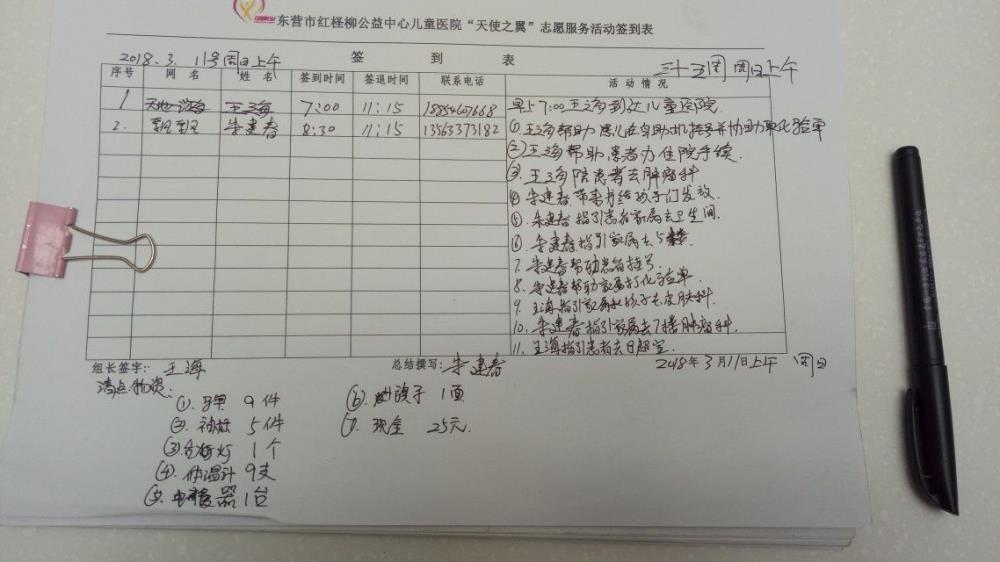 东营市红柽柳公益中心儿童医院“天使之翼”志愿服务活动签到表
签 到 表
2018.3.11号周日上午
三十五周 周日上午
序号 网 名 姓 名 签到时间 签退时间 联系电话 活 动 情 况
1 王海 7:00 11:15 18854607668 早上7:00王海到达儿童医院.
2. 朱建春 8:30 11:15 13563373182 ①王海帮助患儿在自助机挂号并协助取化验单
②王海帮助患者办住院手续.
③.王海陪患者去肿瘤科
④朱建春带图书给孩子们发放.
⑤.朱建春指引患者家属去卫生间.
⑥.朱建春指引家属去5楼
7.朱建春帮助患者挂号.
8.朱建春帮助家属打化验单.
9.王海指引家属和孩子去皮肤科.
10.朱建春指引家属去7楼肿瘤科.
11.王海指引患者去B超室.
组长签字: 王海 总结撰写: 朱建春 2018年3月11日上午 周日
清点物资:
①.马甲 9件
②. 5件
③台灯 1个
④.体温计 9支
⑤. 器1台
⑥. 旗子 1面
⑦.现金 25元.